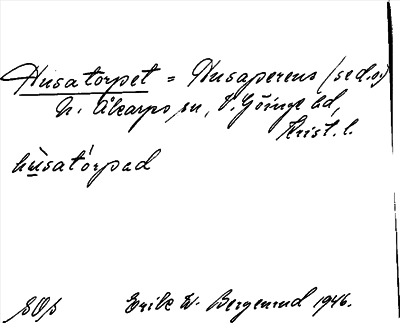 Husatorpet = Husaperens (se d.o)
N. Åkarps sn, V. Göinge hd,
Krist. l.
hùsatórpad
SOs Erik W. Bergenrud 1946.